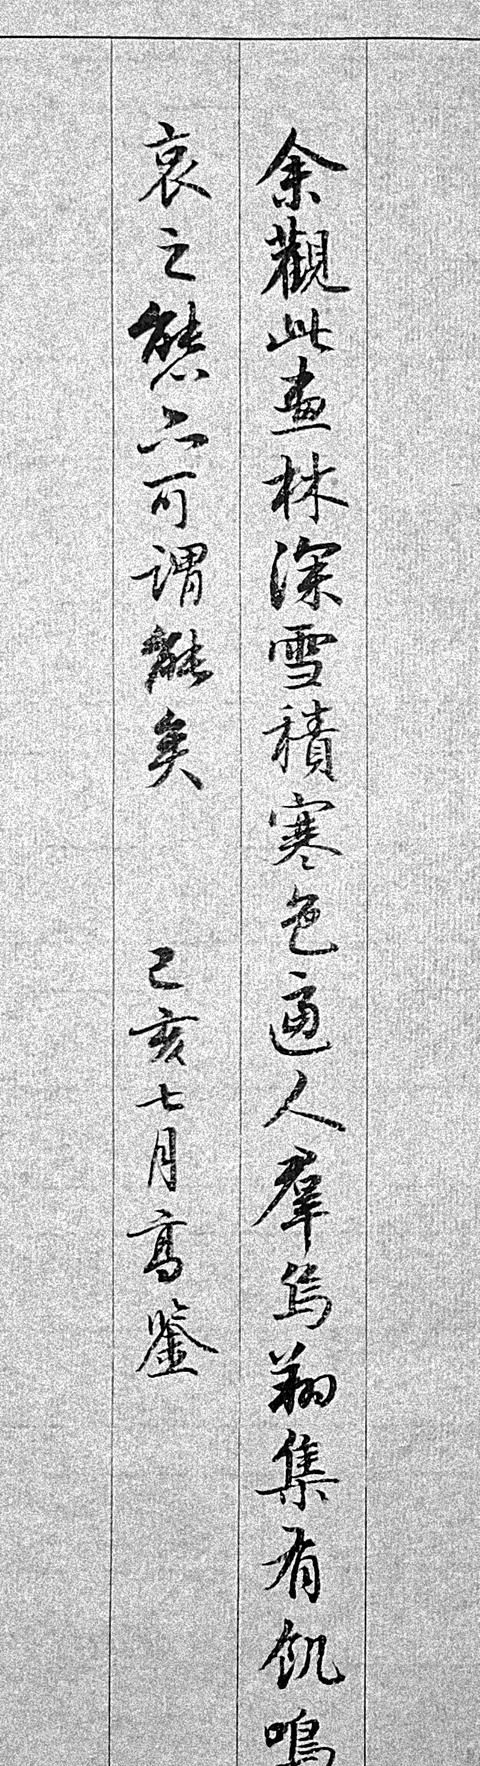 余觀此畫林深雪積寒色逼人羣烏翔集有飢鳴
哀之態亦可謂能矣 己亥七月高鑒